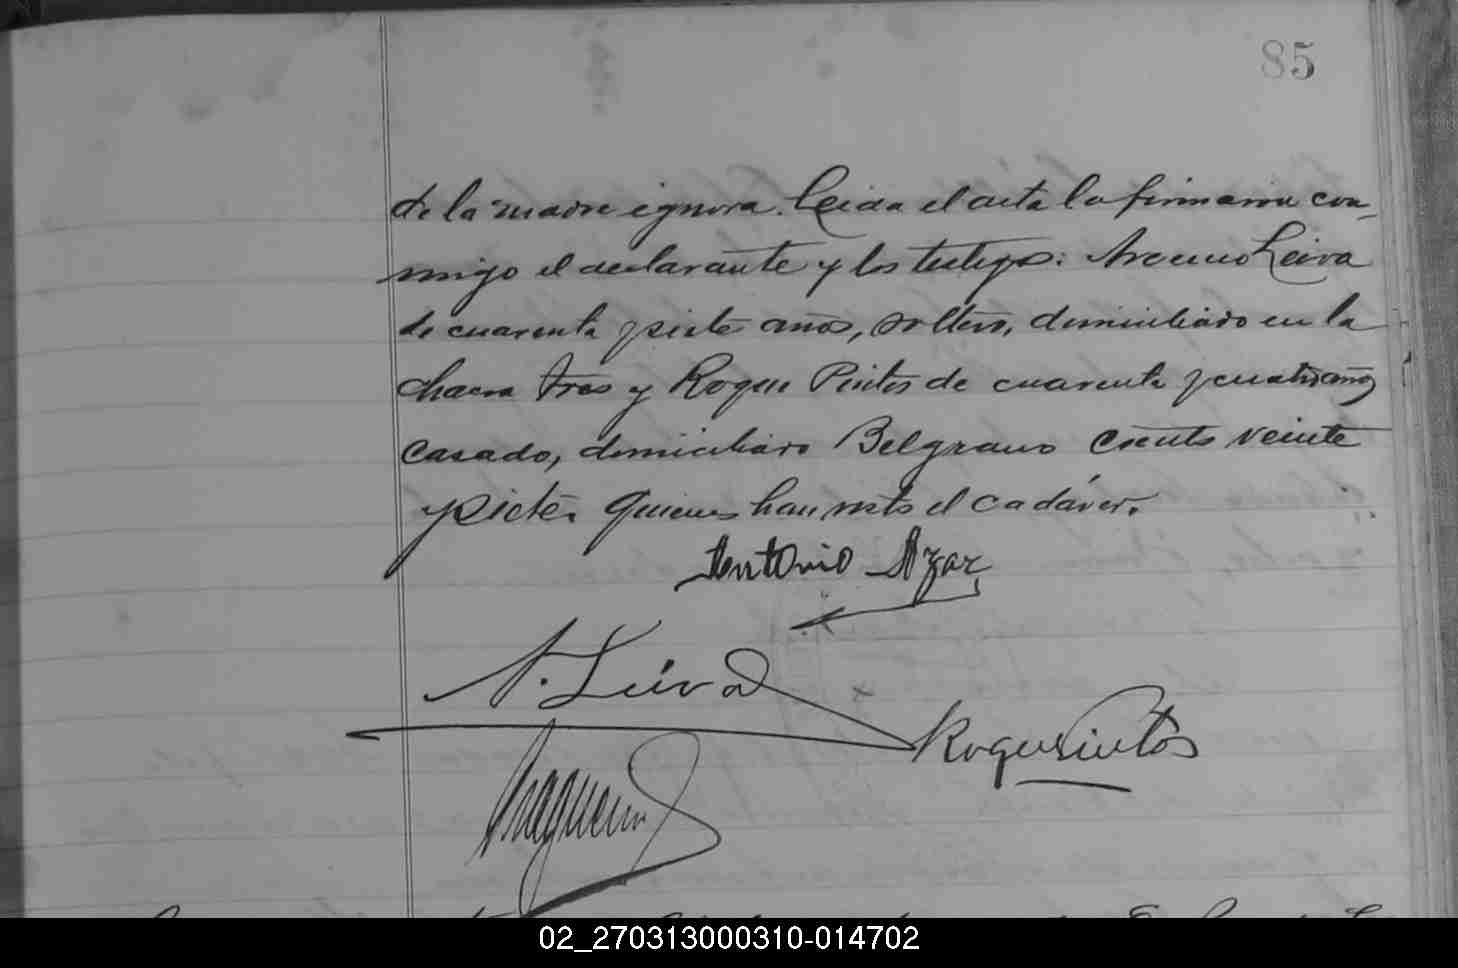 85
de la madre ignora. Leida el acta la firmaron con-
migo el declarante y los testigos: Arsenio Leiva
de cuarenta y siete años, soltero, domiciliado en la
chacra tres y Roque Pintos de cuarenta y cuatro años
casado, domiciliado Belgrano ciento veinte
y siete. Quienes han visto el cadáver.
Antonio Azar
A. Leiva
Roque Pintos
02_270313000310-014702